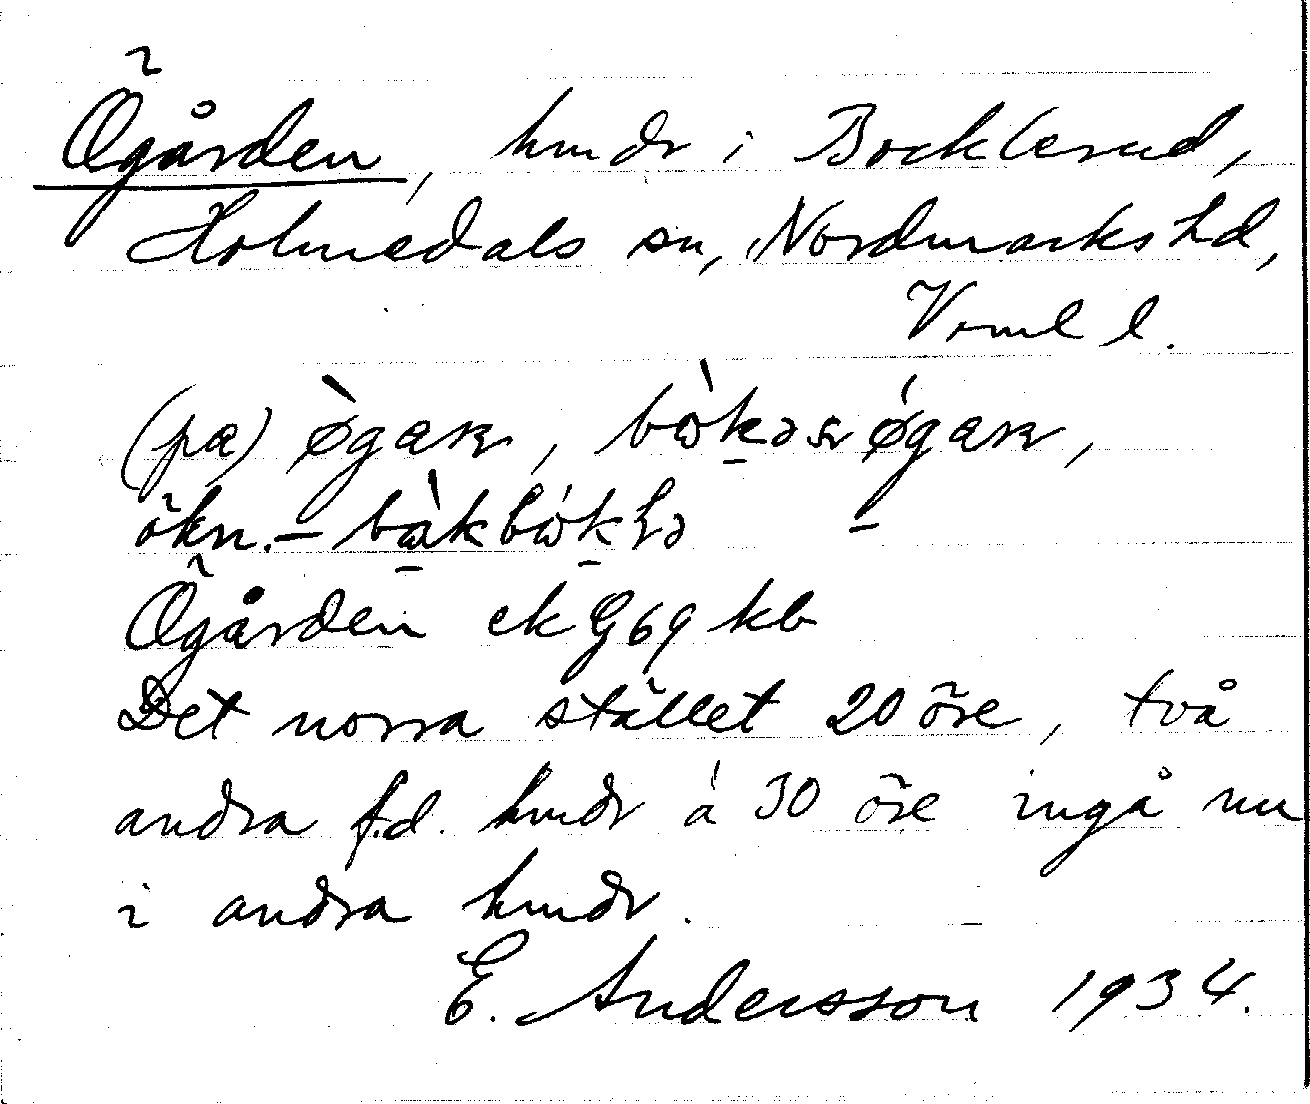 Ögården, hmdr i Bocklerud,
Holmedals sn, Nordmarks hd,
Vrml l.
(pa) øgaɳ, øgaɳ,
ökn. –
Ögården ek G69 kb
Det norra stället 20 öre, två
andra f.d. hmdr á 30 öre ingå nu
i andra hmdr.
E. Andersson 1934.